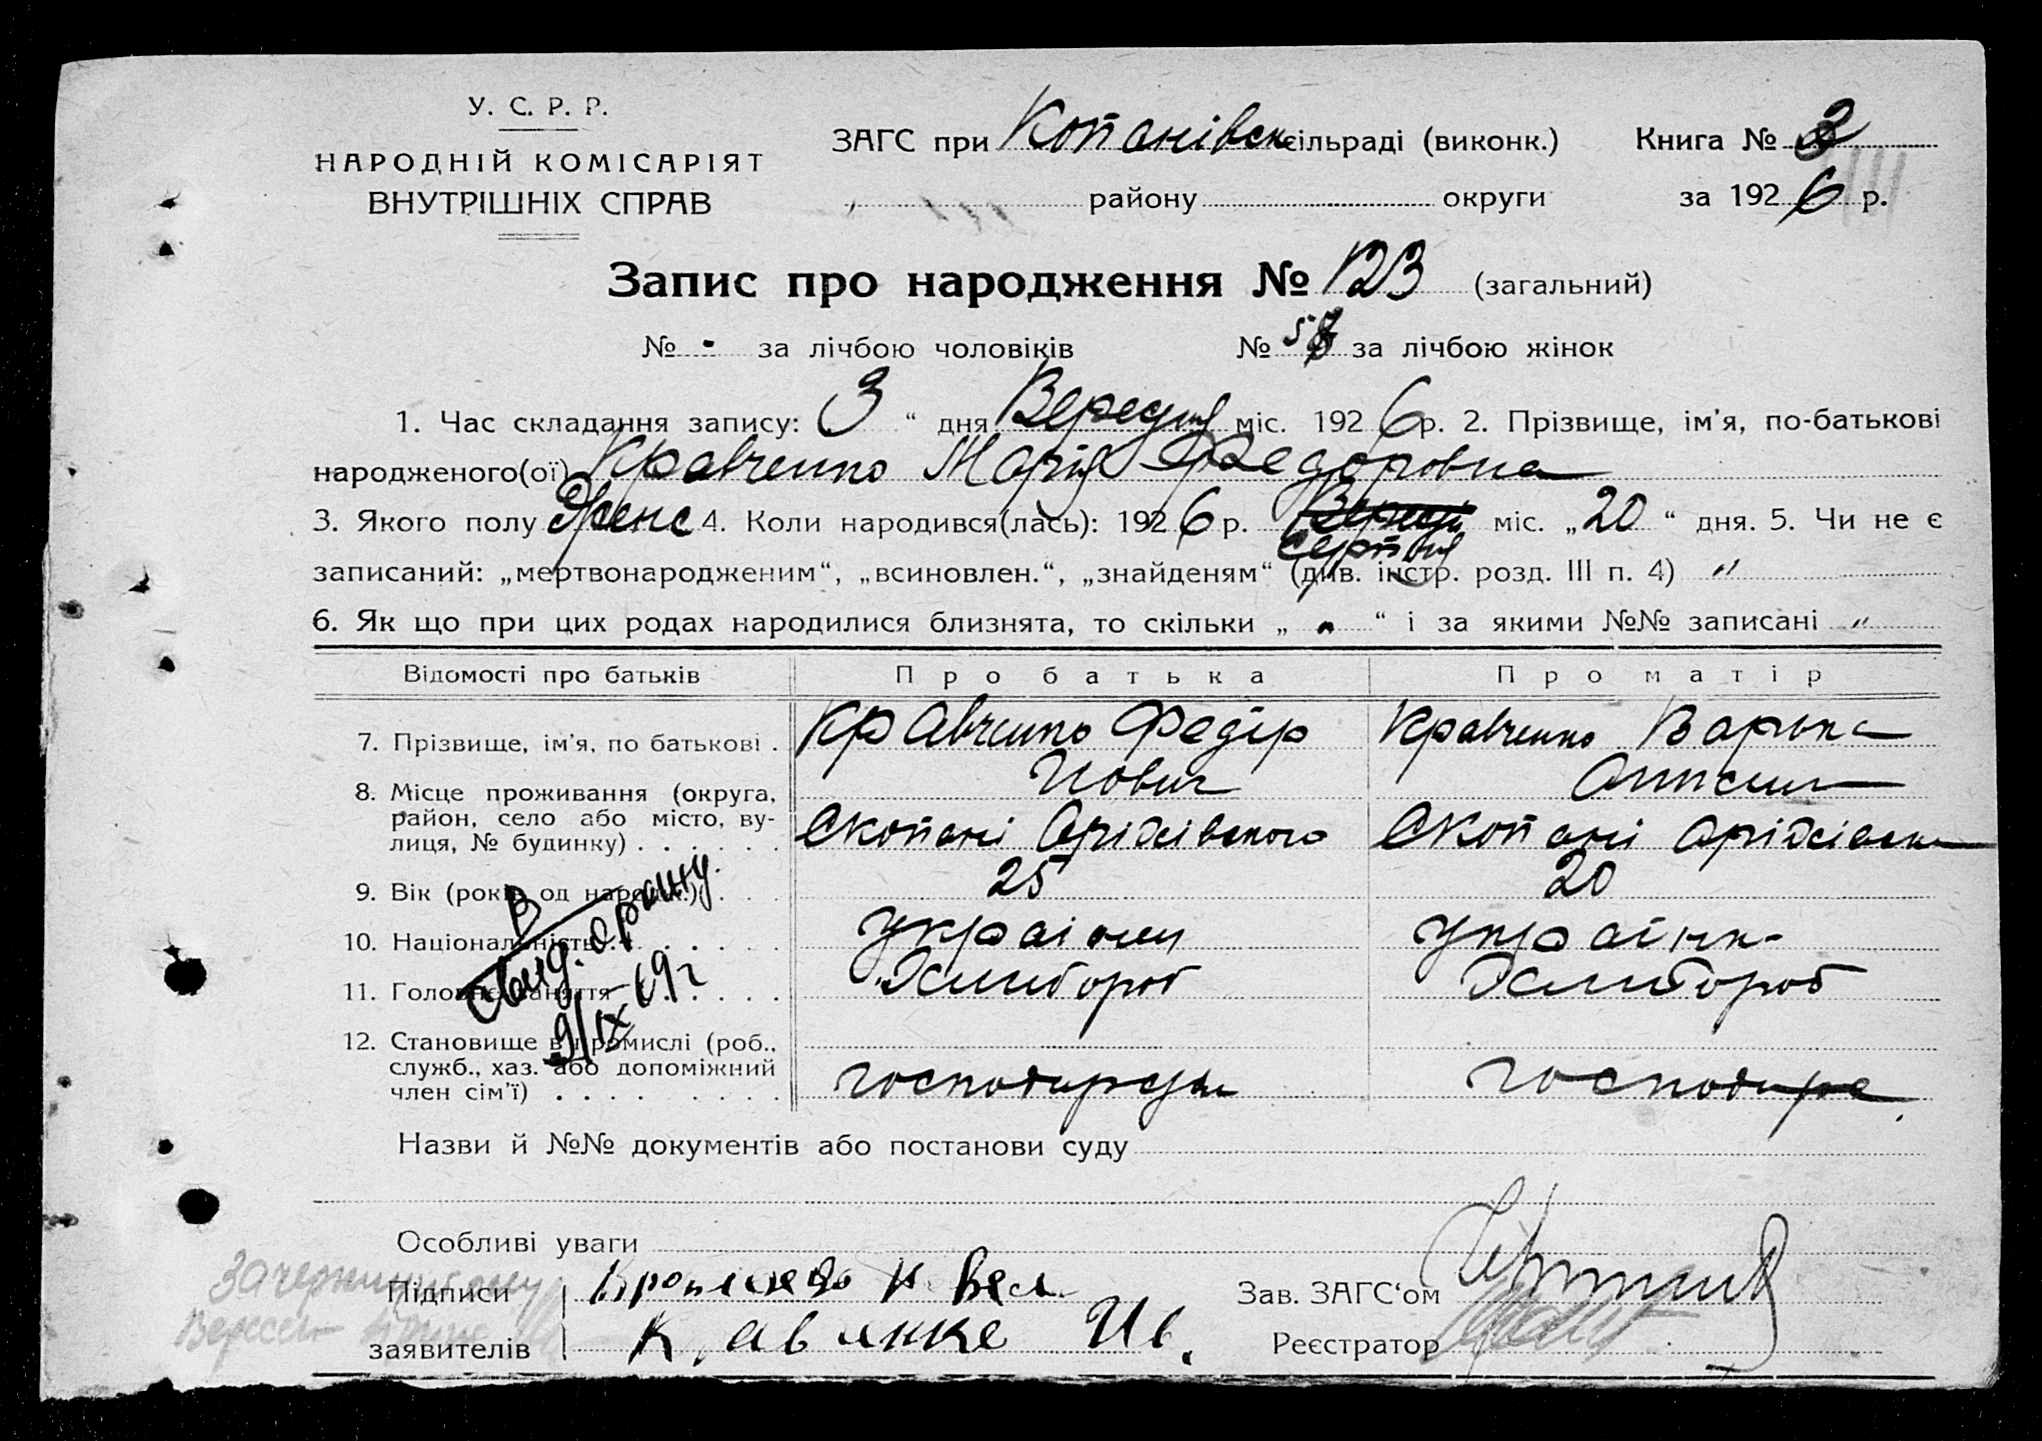 У. С. Р. Р.
НАРОДНІЙ КОМІСАРІЯТ
ВНУТРІШНІХ СПРАВ
ЗАГС при Копанівск сільраді (виконк.) Книга № 3
району округи за 1926 р.
Запис про народження № 123 (загальний)
№ - за лічбою чоловіків № 58 за лічбою жінок
1. Час складання запису: 3 “ дня Вересня міс. 1926 р. 2. Прізвище, ім'я, по-батькові
народженого(ої) Кравченко Марія Федоровна
3. Якого полу Женс 4. Коли народився(лась): 1926 р. Вересн міс. „20“ дня. 5. Чи не є
Серпня
записаний: „мертвонародженим“, „всиновлен.“, „знайденям“ (див. інстр. розд. III п. 4) "
6. Як що при цих родах народилися близнята, то скільки „ “ і за якими №№ записані "
Відомості про батьків Про батька Про матір
7. Прізвище, ім'я, по батькові . Кравченко Федір Кравченко Варька
8. Місце проживання (округа,
район, село або місто, ву-
лиця, № будинку) . . . . . . Скопані Оріхівського Скопані Оріхівськ
9. Вік (років од народж.) . . . 25 20
10. Національність . . . . . . україн українк-
11. Головне заняття . . . . . . Хлибороб Хлибороб
В
Выд.
9/IX-69 г
12. Становище в промислі (роб.,
служб., хаз. або допоміжний
член сім'ї) . . . . . . . . господар господарк
Назви й №№ документів або постанови суду
Особливі уваги
Зачеркнуту
Вересен
Підписи
заявителів Кравченке Ив.
Зав. ЗАГС‘ом
Реєстратор